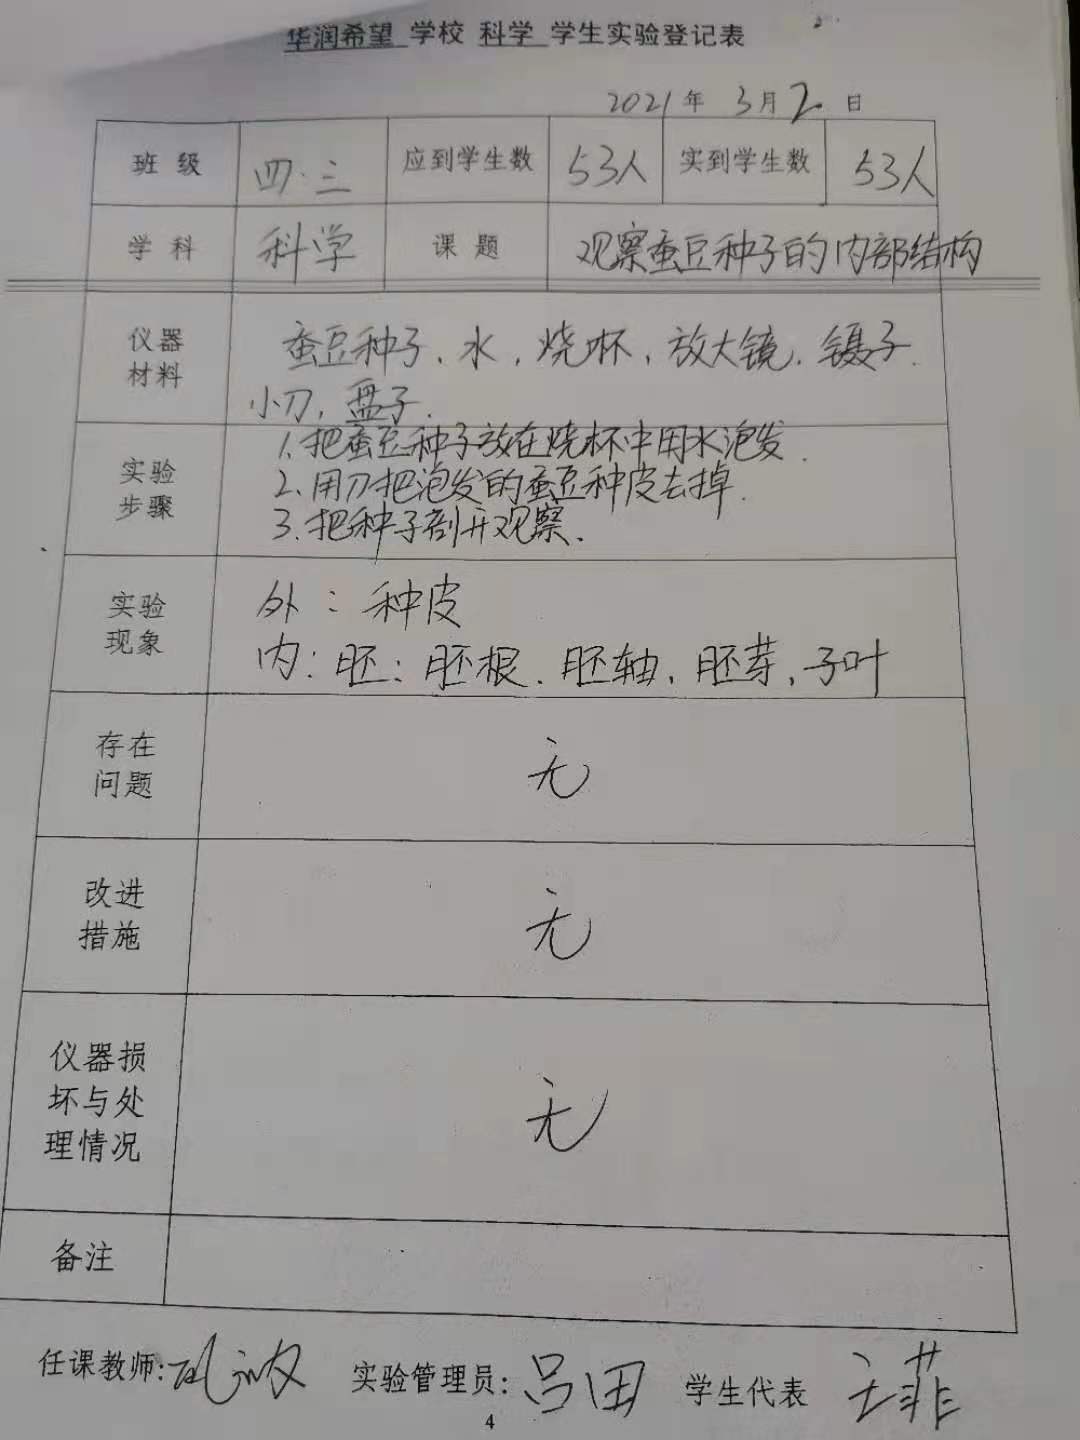 华润希望 学校 科学 学生实验登记表
2021年 3月2日
班级 四.三 应到学生数 53人 实到学生数 53人
学科 科学 课题 观察蚕豆种子的内部结构
仪器 蚕豆种子、水，烧杯，放大镜.镊子.
材料 小刀，盘子.
1.把蚕豆种子放在烧杯中用水泡发.
实验 2.用刀把泡发的蚕豆种皮去掉.
步骤 3.把种子剖开观察.
实验 外：种皮
现象 内：胚：胚根.胚轴，胚芽，子叶
存在
问题 无
改进
措施 无
仪器损
坏与处 无
理情况
备注
任课教师: 实验管理员: 吕田 学生代表 菲
4